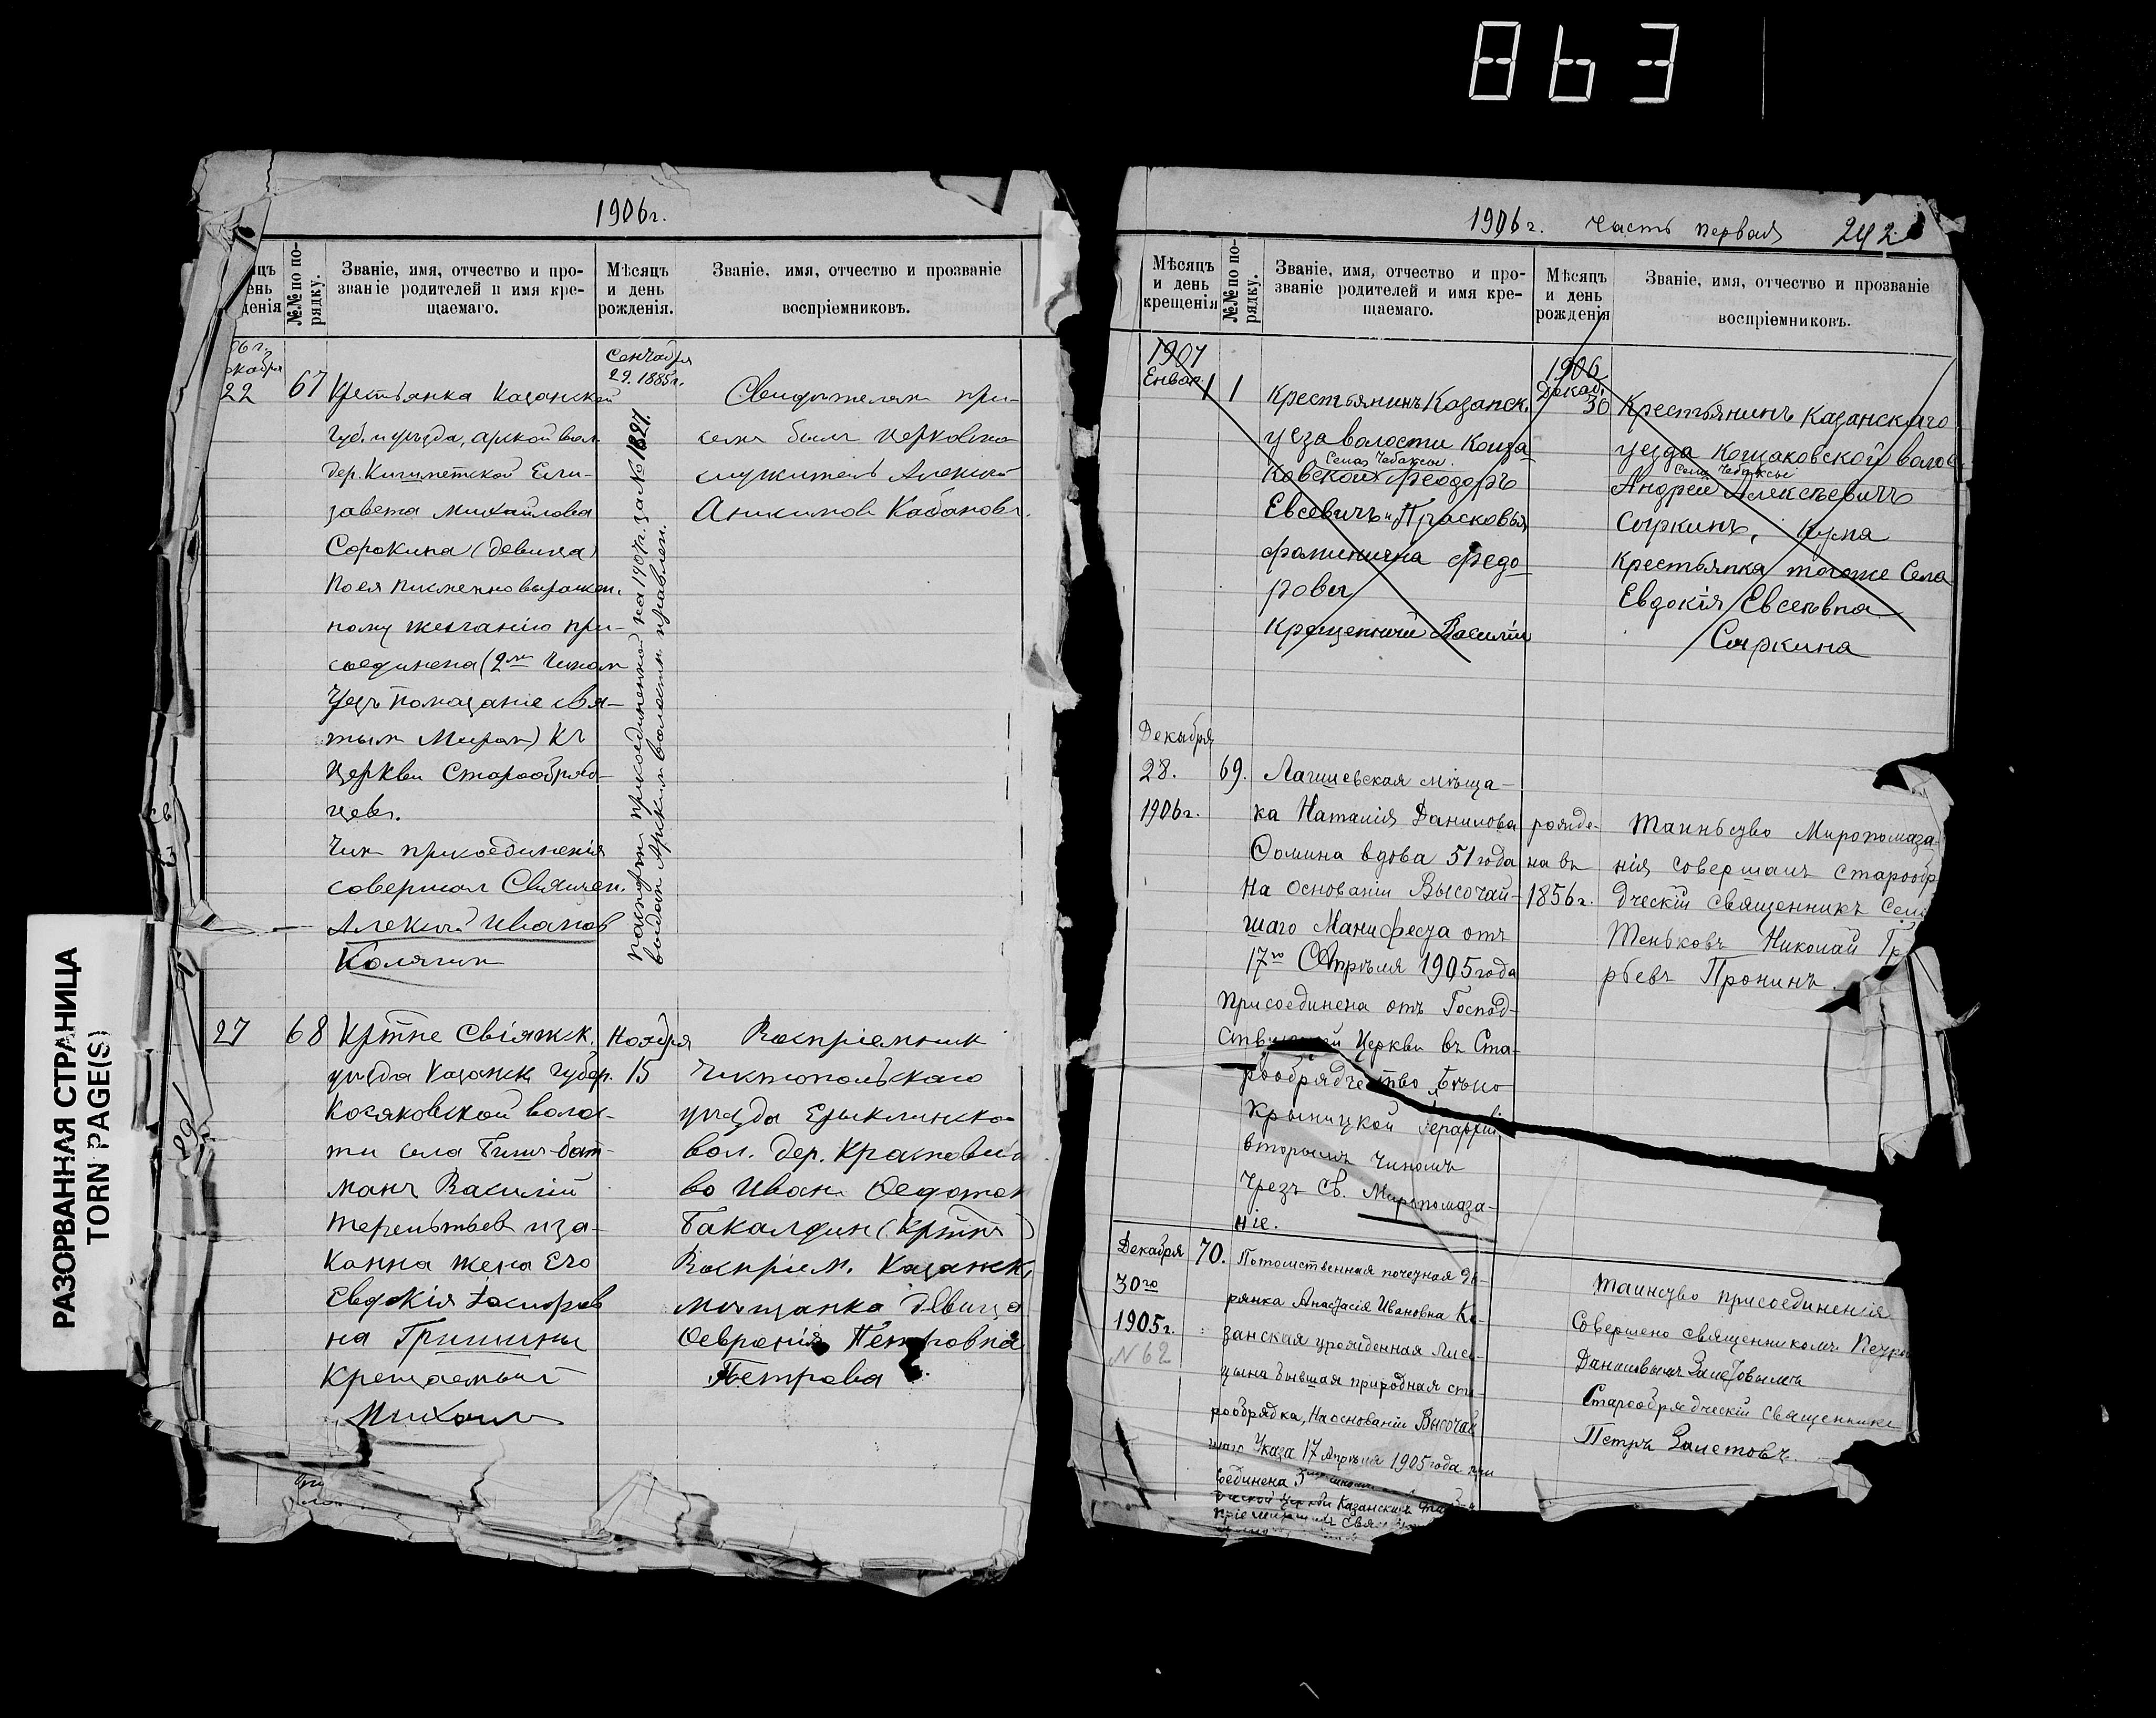 863
РАЗОРВАННАЯ СТРАНИЦА
TORN PAGE(S)
1906г.
№№ по по-
рядку.
Званіе, имя, отчество и про-
званіе родителей и имя кре-
щаемаго.
Мѣсяцъ
и день
рожденія.
Званіе, имя, отчество и прозваніе
воспріемниковъ.
22
67
Сентября
29. 1885г.
Крестьянка Казанской
губ. и уѣзда, Арской вол.
дер. Ели-
завета Михайлова
Сорокина (девица)
по ея писменно выражен.
ному желанію при-
соединена (2мъ Чиномъ
Чрезъ помазаніе свя-
тым Миром) Къ
Церкви Старообряд-
цев.
Чин присоединенія
совершал Священ.
Алексий Иванов
Калягин
Свидѣтелям при-
сем был церковно
служитель Алексий
Аникинов Кабанов.
паспорт присоединенной на 1907г. за № 1897.
выдан Арским волостн. правлен.
27
68
Крт͠не Свіяжск.
уѣзда Казанск. Губер.
волос-
ти села Бишь-бат-
манъ Василій
Терентьев и за-
конна жена Его
Евдокія
на Гришины
Крещаемый
Михаил
Ноября
15
Воспріемник
Чистопольскаго
уѣзда
вол. дер.
во Иван Федотов
Бакалдин (Крт͠нъ)
Воспріем. Казанск.
мѣщанка дѣвица
Февронія Петровна
Петрова
1906г. Часть первая 242
Мѣсяцъ
и день
крещенія
№№ по по-
рядку.
Званіе, имя, отчество и про-
званіе родителей и имя кре-
щаемаго.
Мѣсяцъ
и день
рожденія
Званіе, имя, отчество и прозваніе
воспріемниковъ.
1907
Енвар. 1
1
Крестьянинъ Казанск.
уеза волости Коща-
Села Чебаксы.
ковской Феодоръ
Евсевичъ и Прасковья
Федо-
ровы
крещенный Василій
1906
Декаб.
30
Крестьянинъ Казанскаго
уезда Кощаковской волос
Села Чебаксы
Андрей Алексѣевичъ
Сыркинъ, Кума
Крестьянка тогоже Села
Евдокія Евсевна
Сыркина
Декабря
28.
1906г.
69.
Лаишевская мѣща-
ка Наталія Данилова
Фомина вдова 51 года
На основаніи Высочай-
шаго Манифеста отъ
17го Апрѣля 1905 года
Присоединена отъ Господ-
Церкви въ Ста-
рообрядчество Бѣло-
Крыницкой Іерархіи
вторымъ Чиномъ
Чрезъ Св. Миропомаза-
ніе.
рожде-
на въ
1856г.
Таинство Миропомаза-
нія совершалъ Старообр
дческій священникъ Села
Теньковъ Николай Гр
рьевъ Пронинъ.
Декабря
30го
1905г.
№ 62
70.
Потомственная почетная дво-
рянка Анастасія Ивановна Ка-
занская урожденная Лиси-
цына бывшая природная ста-
рообрядка, На основаніи Высочай
шаго Указа 17 Апрѣля 1905 года при
соединена 3мъ
Церкви Казанскихъ
Таинство присоединенія
Совершено священникомъ Петром
Даниловымъ Залетовымъ
Старообрядческій Священникъ
Петръ Залетовъ.